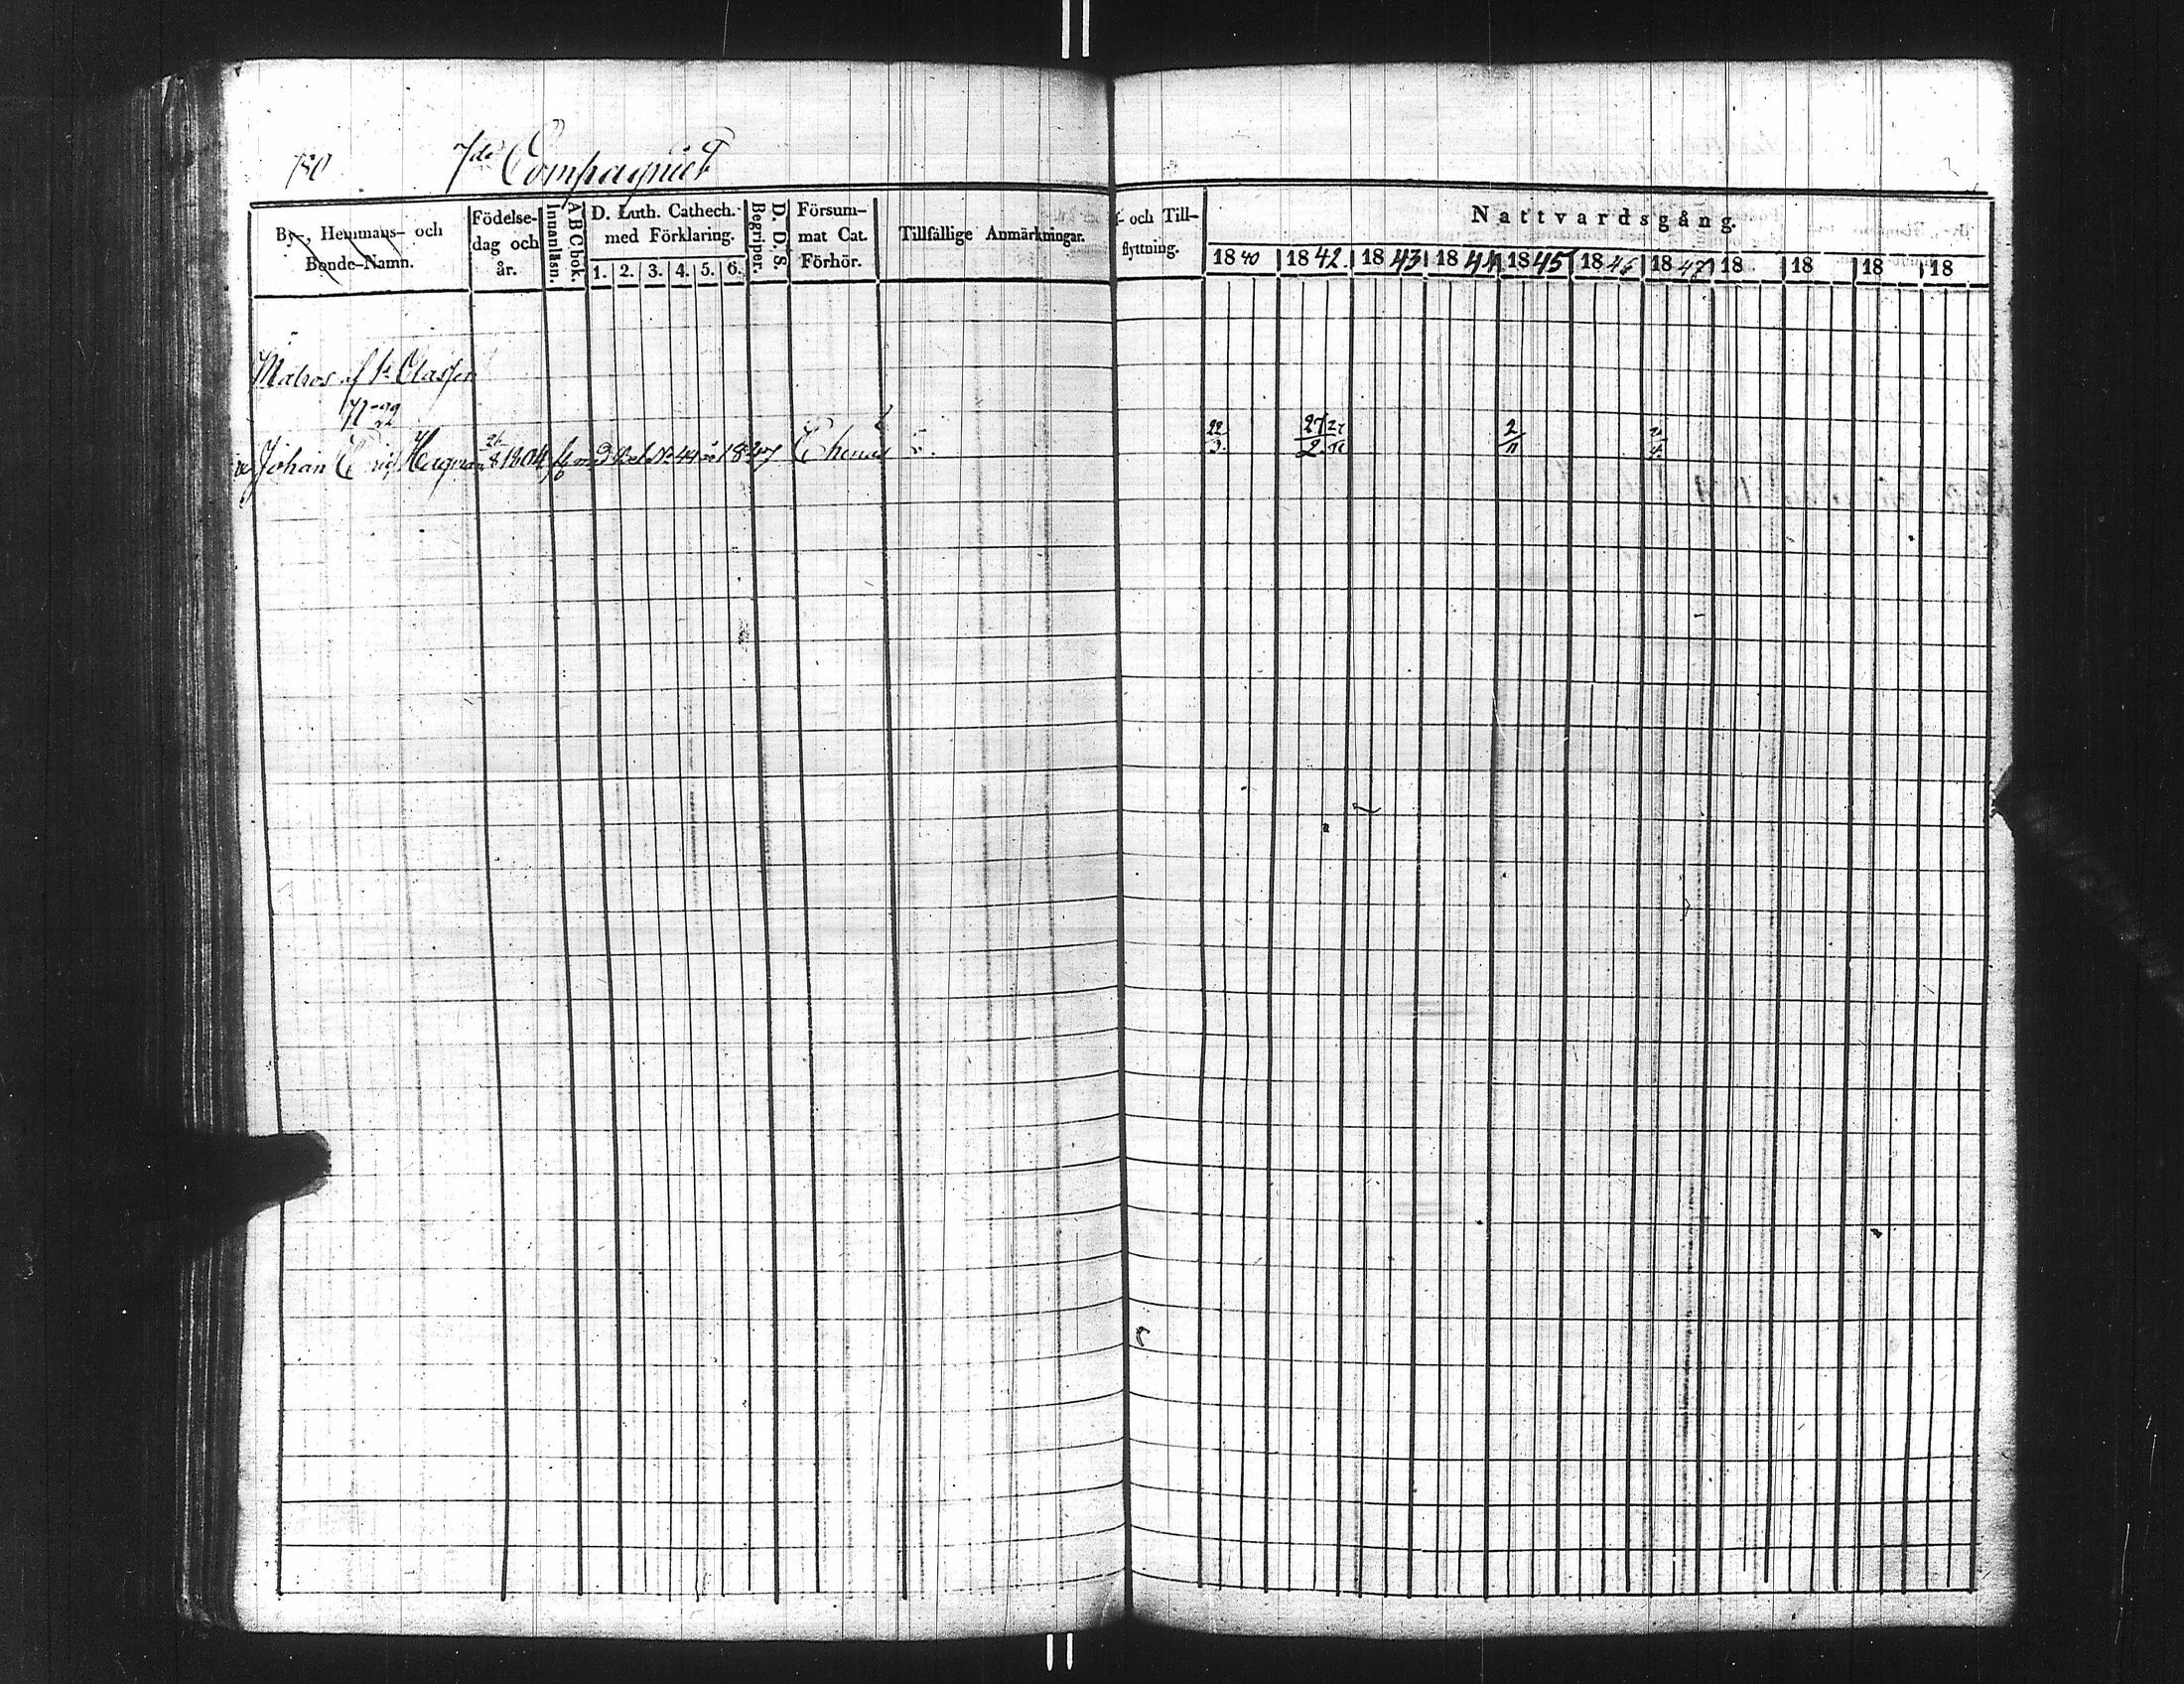 780 7de Compagniet
By-, Hemmans- och Bonde-Namn.
Födelse-dag och år.
Innanläsn.
ABCbok.
D. Luth. Cathech. med Förklaring.
1. 2. 3. 4. 5. 6.
Begriper.
D. D. S.
Försum-mat Cat. Förhör.
Tillfällige Anmärkningar.
och Till-flyttning.
Nattvardsgång.
1840 1842. 1843 1844 1845 1846 1847 18 18 18 18
Matros af 1a Classen
Johan Eric Hagman 26/8 1804 med Bet. No 44 1847 Ekenäs 22/3. 27/2. 2/11 2/4